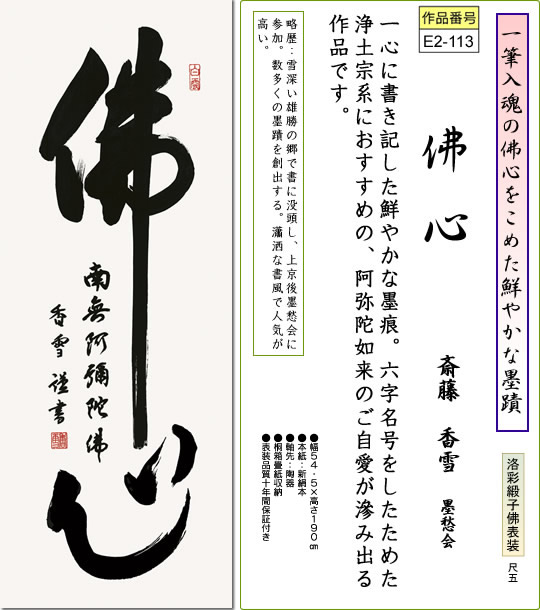 佛心
南無阿彌陀佛
香雪謹書
一筆入魂の佛心をこめた鮮やかな墨蹟
洛彩緞子佛表装
尺五
作品番号
E2-113
佛心
斎藤 香雪 墨愁会
一心に書き記した鮮やかな墨痕。六字名号をしたためた
浄土宗系におすすめの、阿弥陀如来のご自愛が滲み出る
作品です。
略歴：雪深い雄勝の郷で書に没頭し、上京後墨愁会に
参加。数多くの墨蹟を創出する。瀟洒な書風で人気が
高い。
●幅54.5×高さ190㎝
●本紙：新絹本
●軸先：陶器
●桐箱畳紙収納
●表装品質十年間保証付き